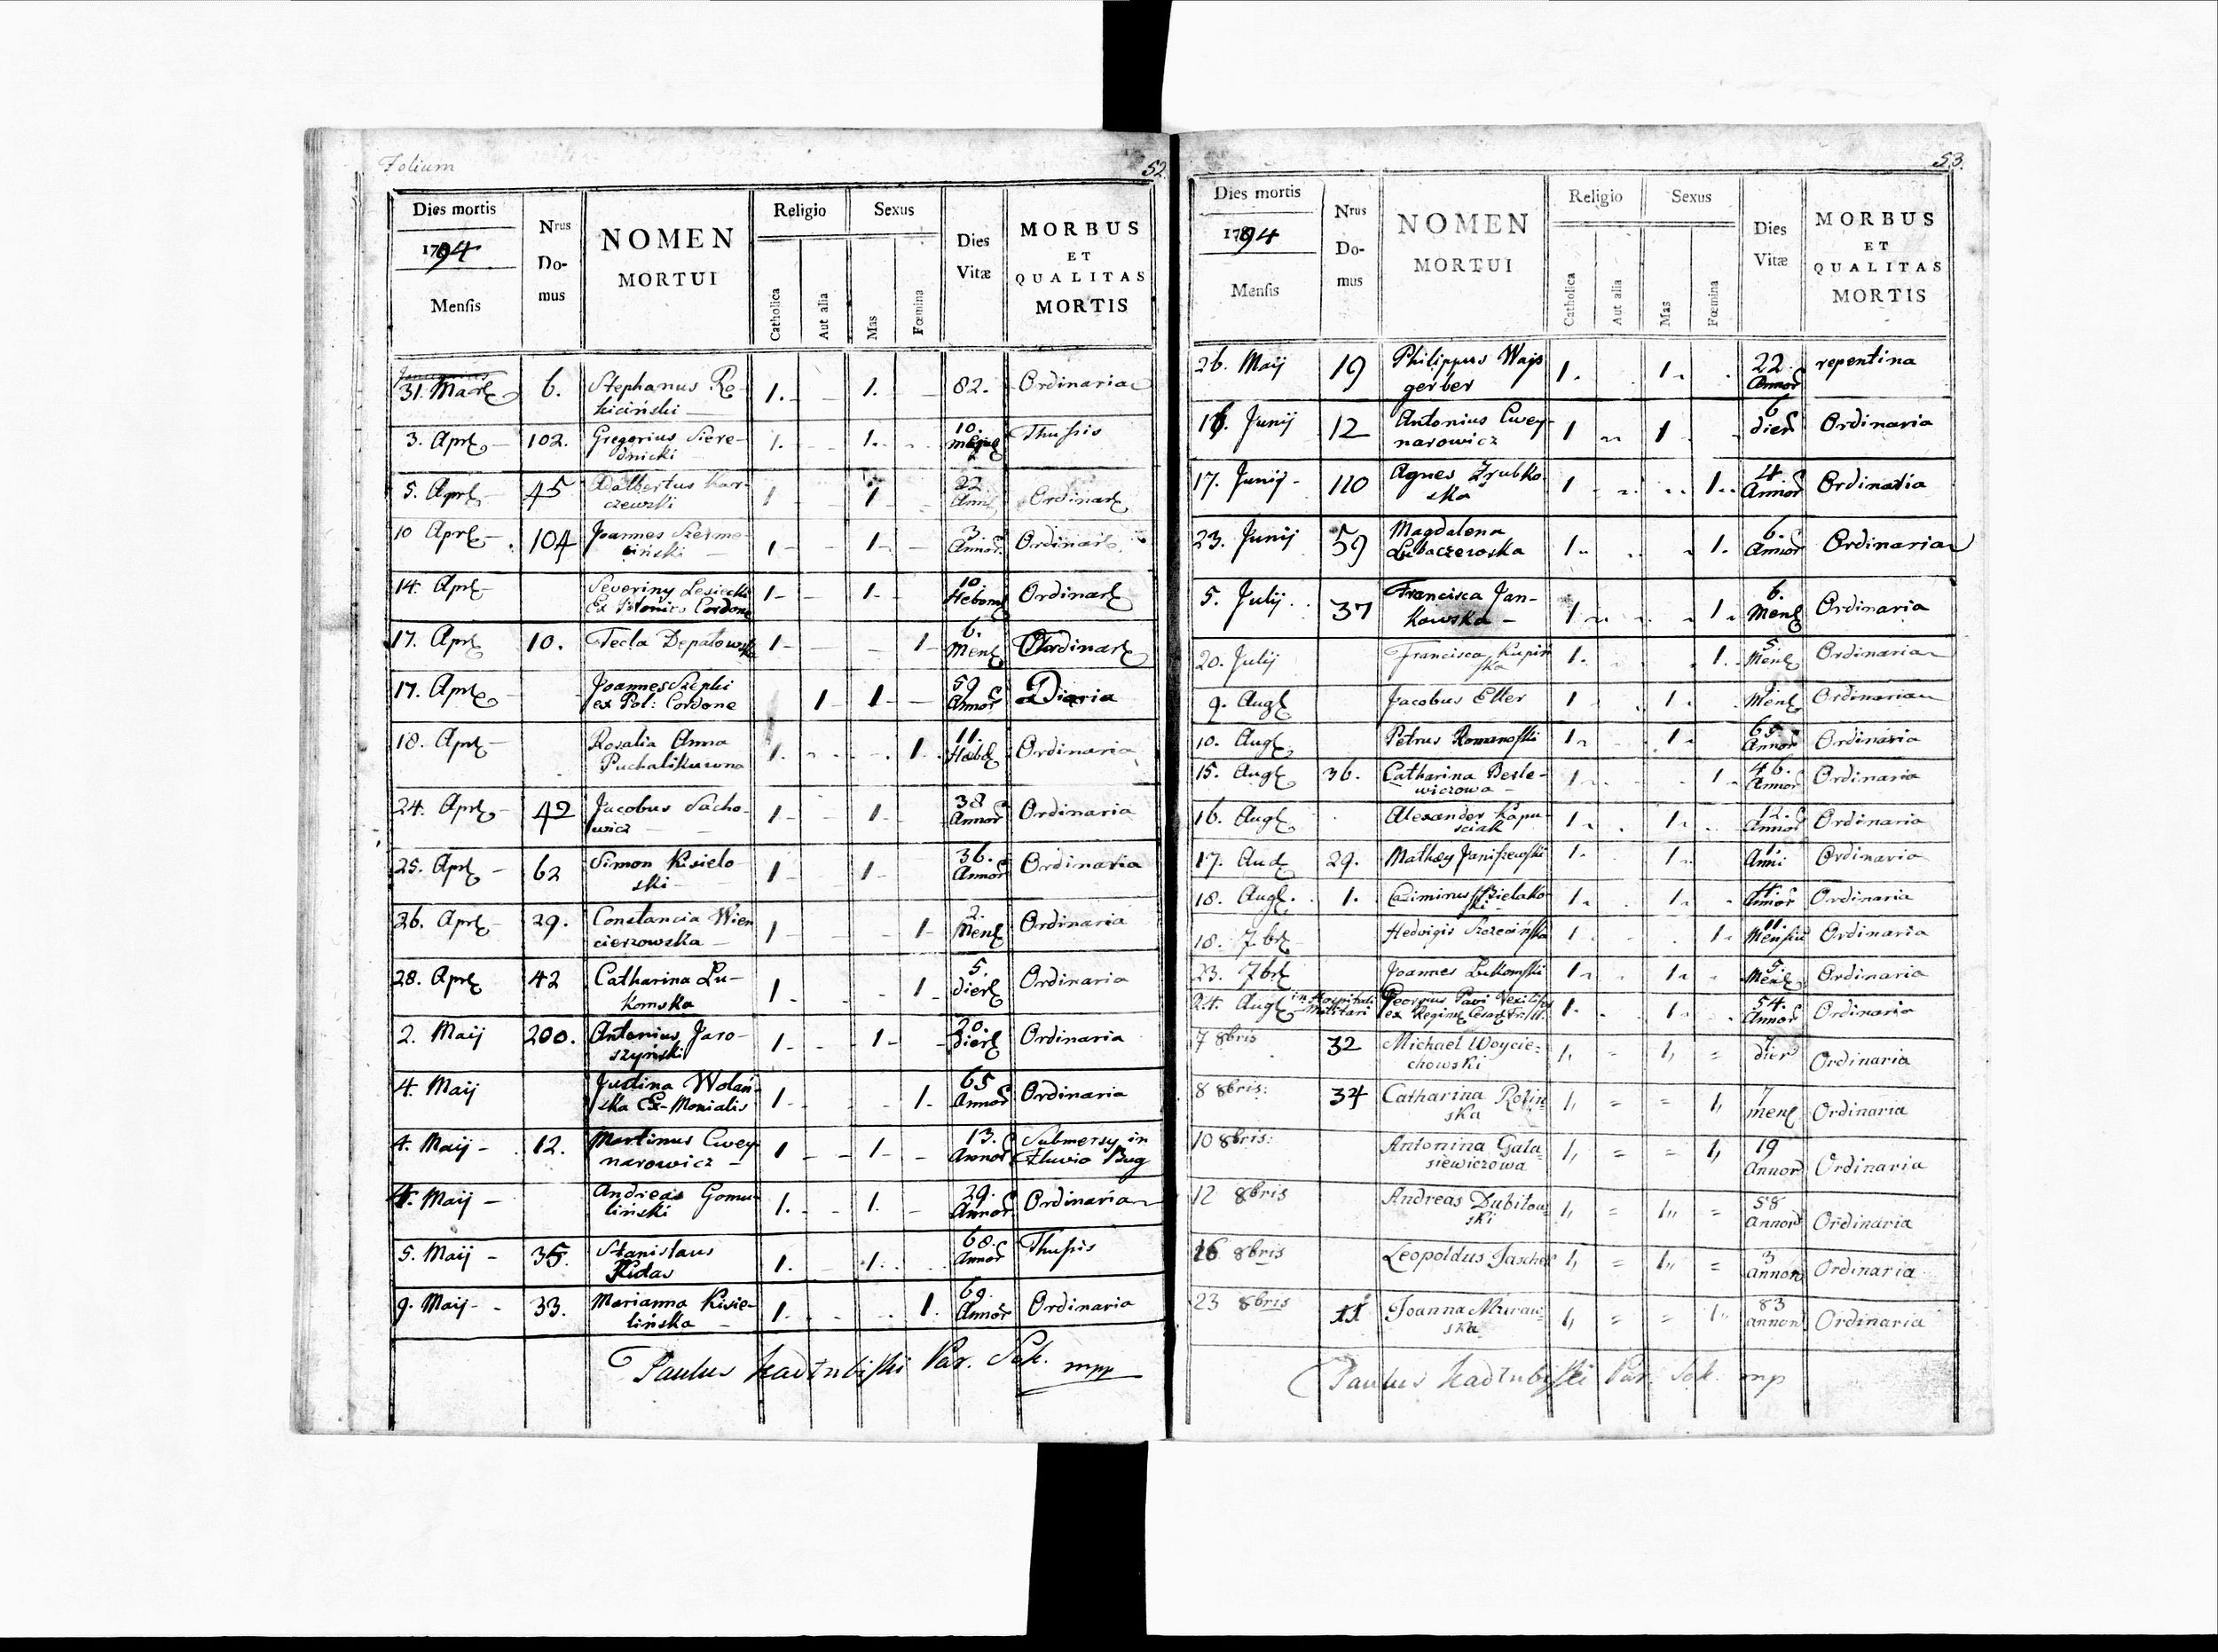 Folium 52.
Dies mortis
1794
Mensis
Nrus Domus
NOMEN
MORTUI
Religio
Catholica
Aut alia
Sexus
Mas
Fœmina
Dies
Vitæ
MORBUS
ET
QUALITAS
MORTIS
31. Mar 6. Stephanus Re- 1. 1. 82. Ordinaria
kiciński
3. Apr 102. Gregorius Siere- 1. 1. 10. Thussis
dnicki
5. Apr 45 Adalbertus Kar- 1 1 22 Ordinar
czewski
10 Apr 104 Joannes 1 1 3. Annor Ordinar
14. Apr Severiny Lesiecki 1 1 10 Hebom Ordinar
Ex Polonico Cordone
17. Apr 10. Tecla Depatowska 1 1 6. Mens Ordinar
17. Apr Joannes Szeplii 1 1 59 Annor Diaria
ex Pol: Cordone
18. Apr Rosalia Anna 1. 1. 11. Hebd Ordinaria
Puchalikuwna
24. Apr 42 Jacobus Sacho- 1 1 38 Annor Ordinaria
wicz
25. Apr 62 Simon Kisielo 1 1 36. Annor Ordinaria
ski
26. Apr 29. Constancia Wien 1 1 2. Mens Ordinaria
cierzowska
28. Apr 42 Catharina Lu- 1 1 5. dier Ordinaria
komska
2. Maij 200. Antonius Jaro- 1 1 20. dier Ordinaria
szyński
4. Maij Justina Wolań- 1 1 65 Annor Ordinaria
ska Ex-Monialis
4. Maij 12. Martinus Cwey 1 1 13. Annor Submersy in
narowicz Fluvio Bug
4. Maij Andreas Gomu- 1. 1. 29. Annor Ordinaria
liński
5. Maij 35. Stanislaus 1. 1. 68. Annor Thussis
Kidas
9. Maij 33. Marianna Kisie- 1. 1. 69. Annor Ordinaria
lińska
Paulus Kadłubiski Par. Sok. mpp
53.
Dies mortis
1794
Mensis
Nrus Domus
NOMEN
MORTUI
Religio
Catholica
Aut alia
Sexus
Mas
Fœmina
Dies
Vitæ
MORBUS
ET
QUALITAS
MORTIS
26. Maij 19 Philippus Wajs 1. 1. 22. Annor repentina
gerber
16. Junij 12 Antonius Cwey- 1 1 6 dier Ordinaria
narowicz
17. Junij 110 Agnes Zrubko 1 1 4 Annor Ordinaria
ska
23. Junij 59 Magdalena 1 1. 6. Annor Ordinaria
Lubaczewska
5. Julij 37 Francisca Jan- 1 1 6. Mens Ordinaria
kowska
20. Julij Francisca Kupiń 1. 1. 5. Mens Ordinaria
ska
9. Aug Jacobus Etler 1 1 Mens Ordinaria
10. Aug Petrus Romanoski 1 1 65 Annor Ordinaria
15. Aug 36. Catharina Besle- 1 1 46. Annor Ordinaria
wiczowa
16. Aug Alexander Kapu- 1 1 12. Annor Ordinaria
sciak
17. Aug 29. Mathey Janiszewski 1. 1 1. Anni Ordinaria
18. Aug 1. Casimirus Bielako 1 1 4 Annor Ordinaria
ski
18. 7br Hedvigis 1 1 11 Mensiu Ordinaria
23. 7br Joannes Lukomski 1 1 5. Mens Ordinaria
24. Aug in Hospitali Militari Georgius Pavi Vexilifer 1. 1 54. Annor Ordinaria
ex Regim Cesar
7 8bris 32 Michael Woycie- 1 1 7 dier Ordinaria
chowski
8 8bris: 34 Catharina Rolin 1 1 7 mens Ordinaria
ska
10 8bris: Antonina Gala- 1 1 19 Annor Ordinaria
siewiczowa
12 8bris Andreas Dubitow- 1 1 58 Annor Ordinaria
ski
16 8bris Leopoldus Jaschel 1 1 3 annor Ordinaria
23 8bris 11 Joanna Muraw- 1 1 83 annor Ordinaria
ska
Paulus Kadłubiski Par. Sok. mp